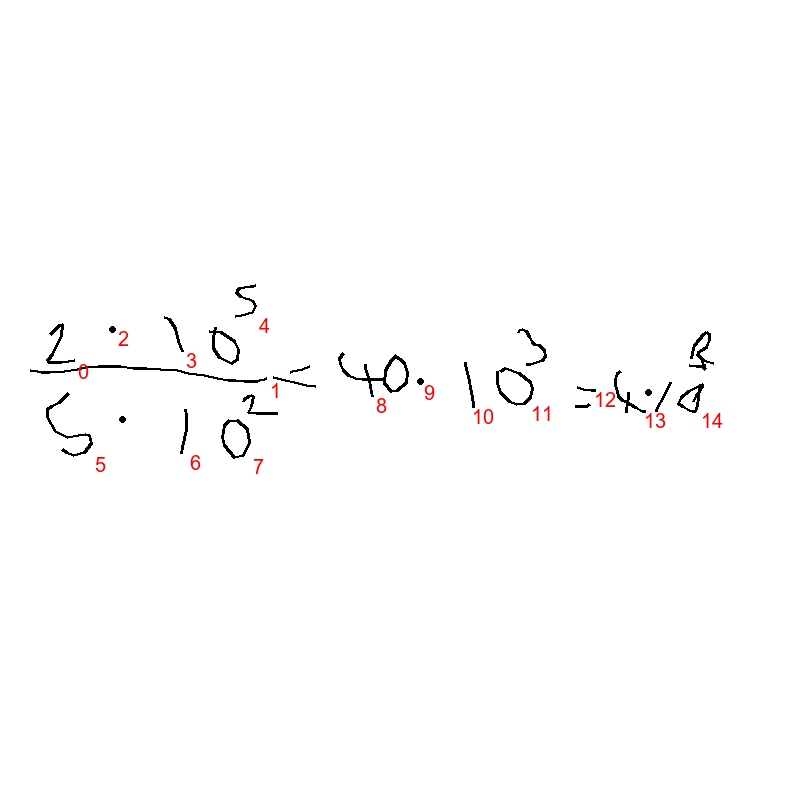 \frac{2 \cdot 10^5}{5 \cdot 10^2} = 40 \cdot 10^3 = 4 \cdot 10^2
0 1 2 3 4 5 6 7 8 9 10 11 12 13 14